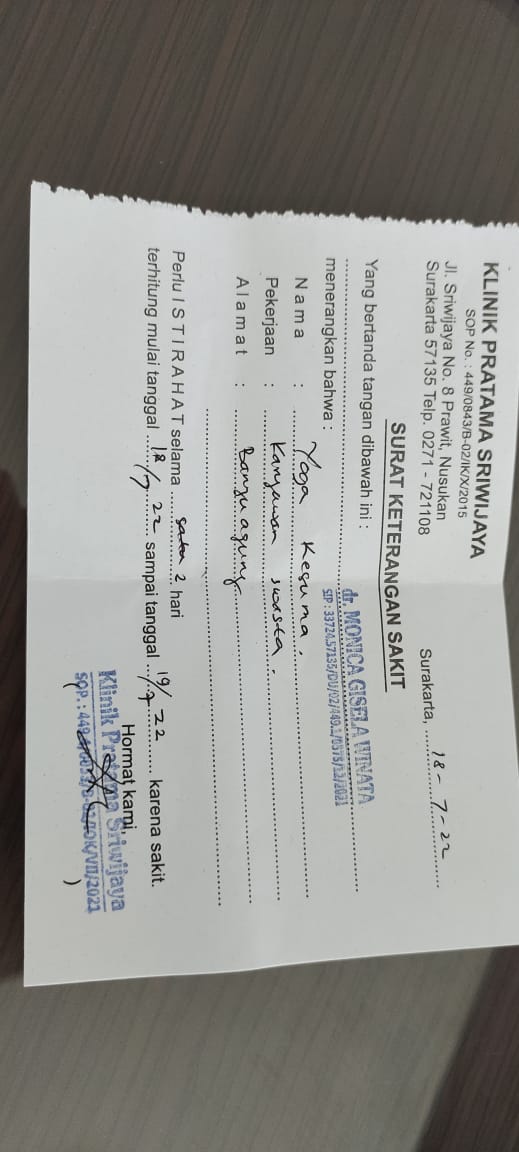 KLINIK PRATAMA SRIWIJAYA
SOP No. : 449/0843/B-02/IK/X/2015
Jl. Sriwijaya No. 8 Prawit, Nusukan
Surakarta 57135 Telp. 0271 - 721108
Surakarta, 18 - 7 - 22
SURAT KETERANGAN SAKIT
Yang bertanda tangan dibawah ini :
dr. MONICA GISELA WINATA
menerangkan bahwa :
Nama : Yoga Kesuma.
Pekerjaan : Karyawan swasta.
Alamat : Banyuagung
Perlu ISTIRAHAT selama 2 hari
terhitung mulai tanggal 18/7 22 sampai tanggal 19/7 22 karena sakit.
Hormat kami,
Klinik Pratama Sriwijaya